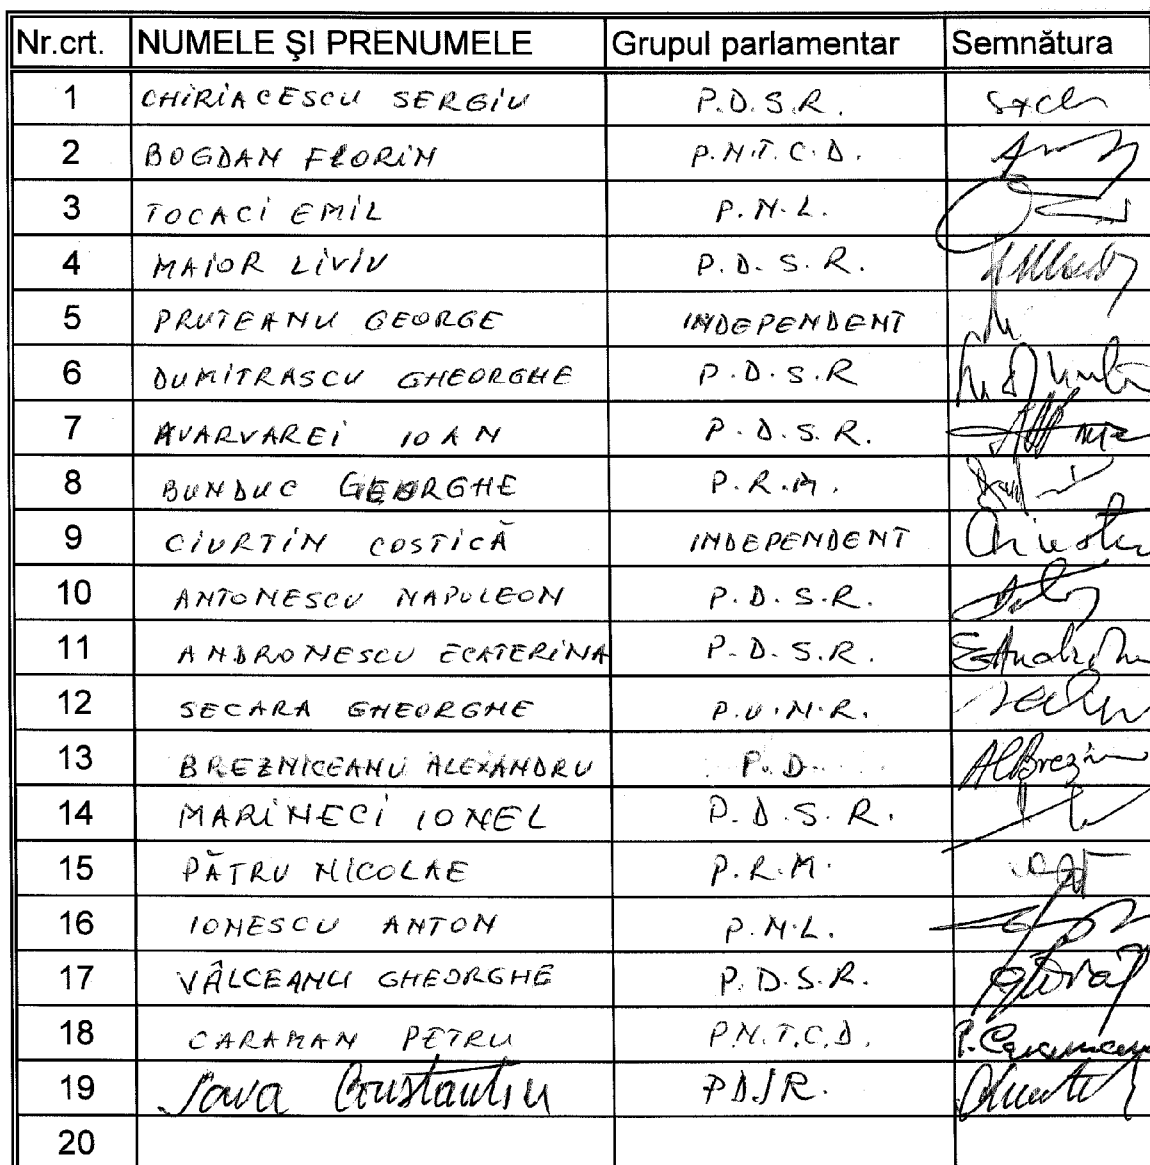 Nr.crt. NUMELE ŞI PRENUMELE Grupul parlamentar Semnătura
1 CHIRIACESCU SERGIU P.D.S.R.
2 BOGDAN FLORIN P.N.T.C.D.
3 TOCACI EMIL P.N.L.
4 MAIOR LIVIU P.D.S.R.
5 PRUTEANU GEORGE INDEPENDENT
6 DUMITRASCU GHEORGHE P.D.S.R
7 AVARVAREI IOAN P.D.S.R.
8 BUNDUC GEORGHE P.R.M.
9 CIURTIN COSTICĂ INDEPENDENT
10 ANTONESCU NAPOLEON P.D.S.R.
11 ANDRONESCU ECATERINA P.D.S.R.
12 SECARA GHEORGHE P.U.N.R.
13 BREZNICEANU ALEXANDRU P.D.
14 MARINECI IONEL P.D.S.R.
15 PĂTRU NICOLAE P.R.M.
16 IONESCU ANTON P.N.L.
17 VÂLCEANU GHEORGHE P.D.S.R.
18 CARAMAN PETRU P.N.T.C.D. P. Caraman
19 Sava Constantin PDSR.
20